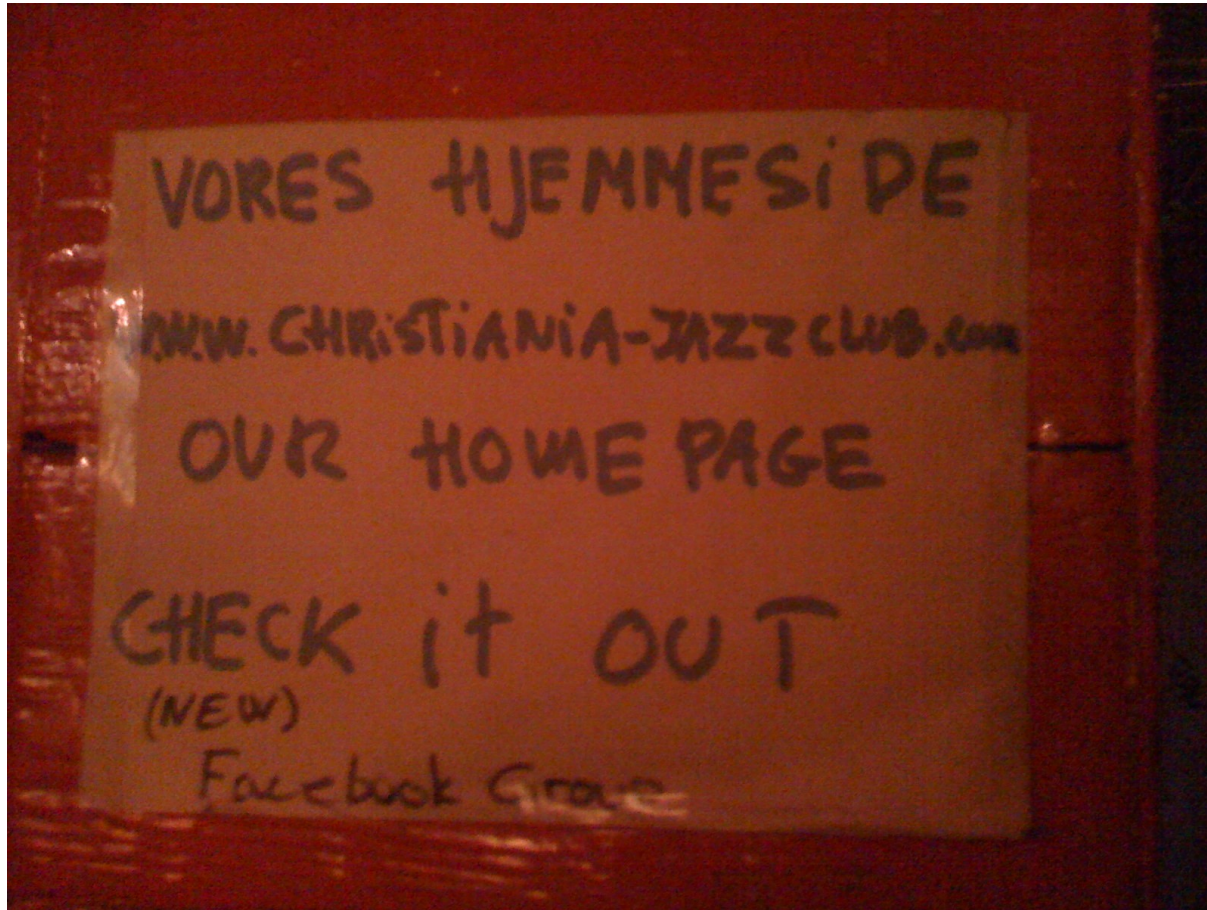 VORES HJEMMESiDE
WWW.CHRiSTiANiA-JAZZCLUB.com
OUR HOMEPAGE
CHECK it OUT
(NEW)
Facebook Group